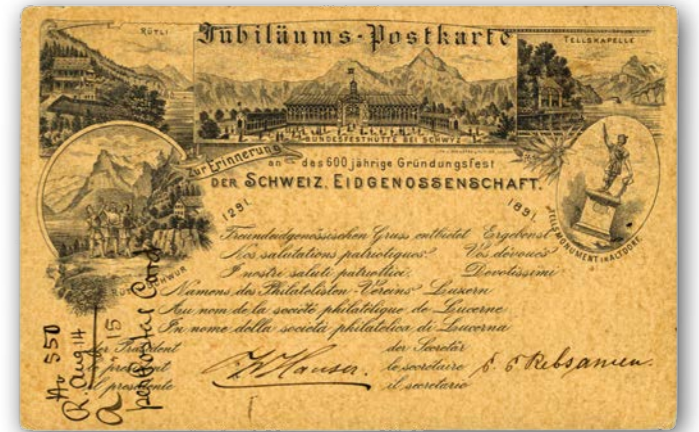 RÜTLI
Jubiläums-Postkarte
TELLSKAPELLE
BUNDESFESTHÜTTE BEI SCHWYZ
Zur Erinnerung
an das 600 jährige Gründungsfest
DER SCHWEIZ. EIDGENOSSENSCHAFT.
1291. 1891.
TELLSMONUMENT IN ALTDORF.
RÜTLISCHWUR
Freundeidgenössischen Gruss entbietet Ergebenst
Nos salutations patriotiques. Vos dévoués
I nostri saluti patriottici. Devotissimi
Namens des Philatelisten-Vereins Luzern
Au nom de la société philatélique de Lucerne
In nome della società philatelica di Lucerna
der Präsident der Secretär
le président le secrétaire
il presidente il secretario
Hauser.
Rebsamen.
550
R. Aug 14
a 15
per Postal Card